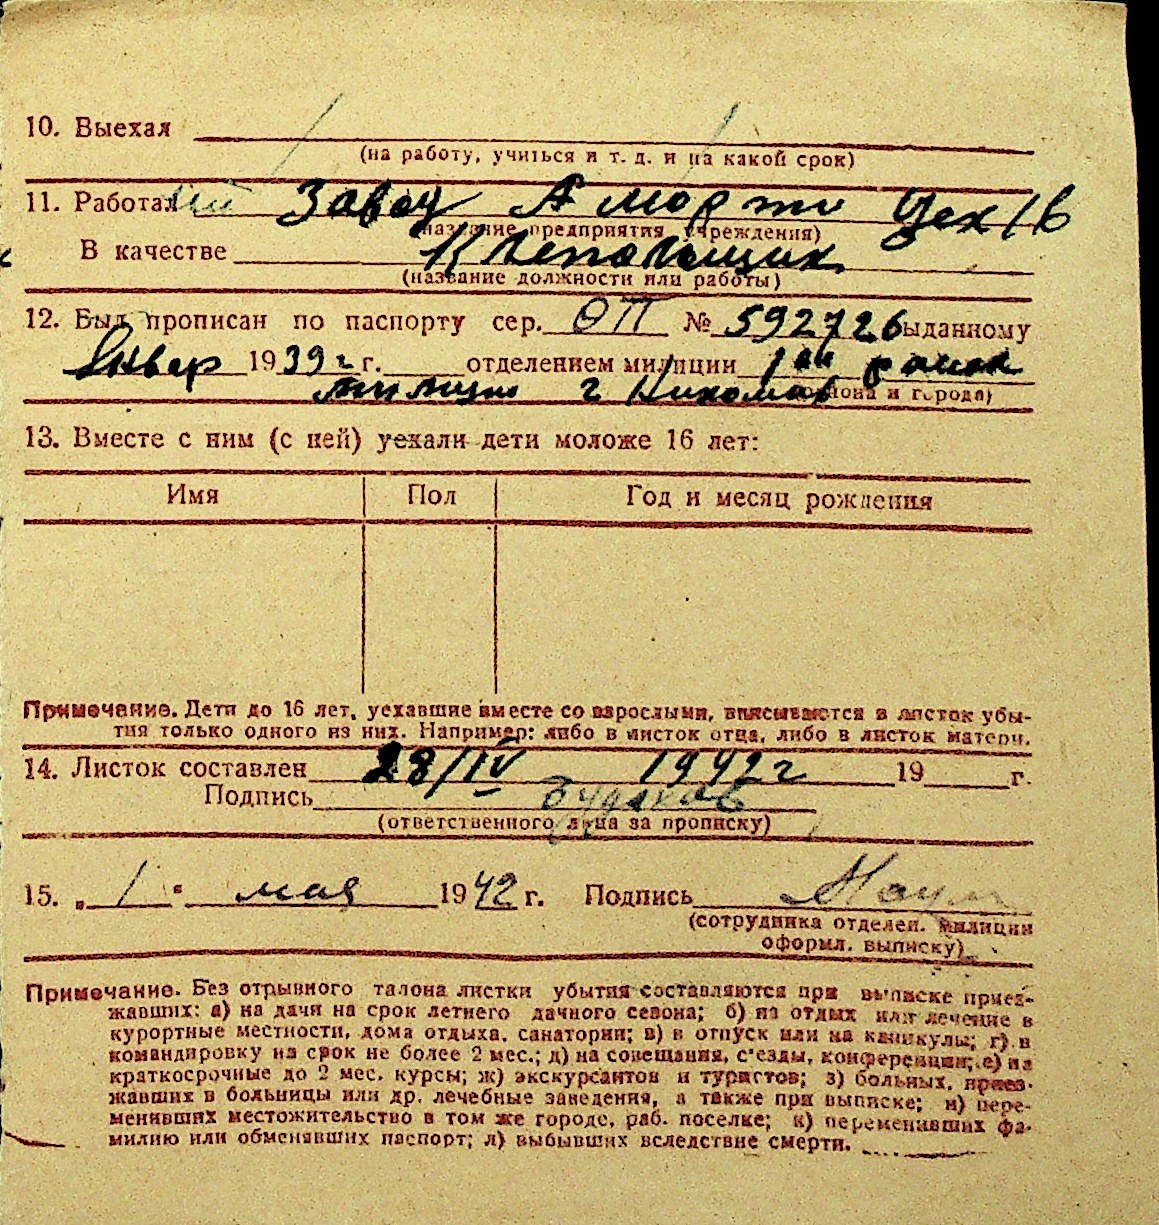 10. Выехал
(на работу, учиться и т. д. и на какой срок)
11. Работал Завод А Марти Цех 16
(название предприятия учреждения)
В качестве Клепальщик
(название должности или работы)
12. Был прописан по паспорту сер. ОП № 592726 выданному
Январ 1939 г г. отделением милиции 1ой район
милиции г Николаев района и города)
13. Вместе с ним (с ней) уехали дети моложе 16 лет:
Имя Пол Год и месяц рождения
Примечание. Дети до 16 лет, уехавшие вместе со взрослыми, вписываются в листок убы-
тия только одного из них. Например: либо в листок отца, либо в листок матери.
14. Листок составлен 28/IV 1942 г 19 г.
Подпись
(ответственного лица за прописку)
15. „ 1 " мая 1942 г. Подпись
(сотрудника отделен. милиции
оформл. выписку)
Примечание. Без отрывного талона листки убытия составляются при выписке приез-
жавших: а) на дачи на срок летнего дачного сезона; б) на отдых или лечение в
курортные местности, дома отдыха, санатории; в) в отпуск или на каникулы; г) в
командировку на срок не более 2 мес.; д) на совещания, с'езды, конференции; е) на
краткосрочные до 2 мес. курсы; ж) экскурсантов и туристов; з) больных, приез-
жавших в больницы или др. лечебные заведения, а также при выписке; и) пере-
менивших местожительство в том же городе, раб. поселке; к) переменивших фа-
милию или обменявших паспорт; л) выбывших вследствие смерти.